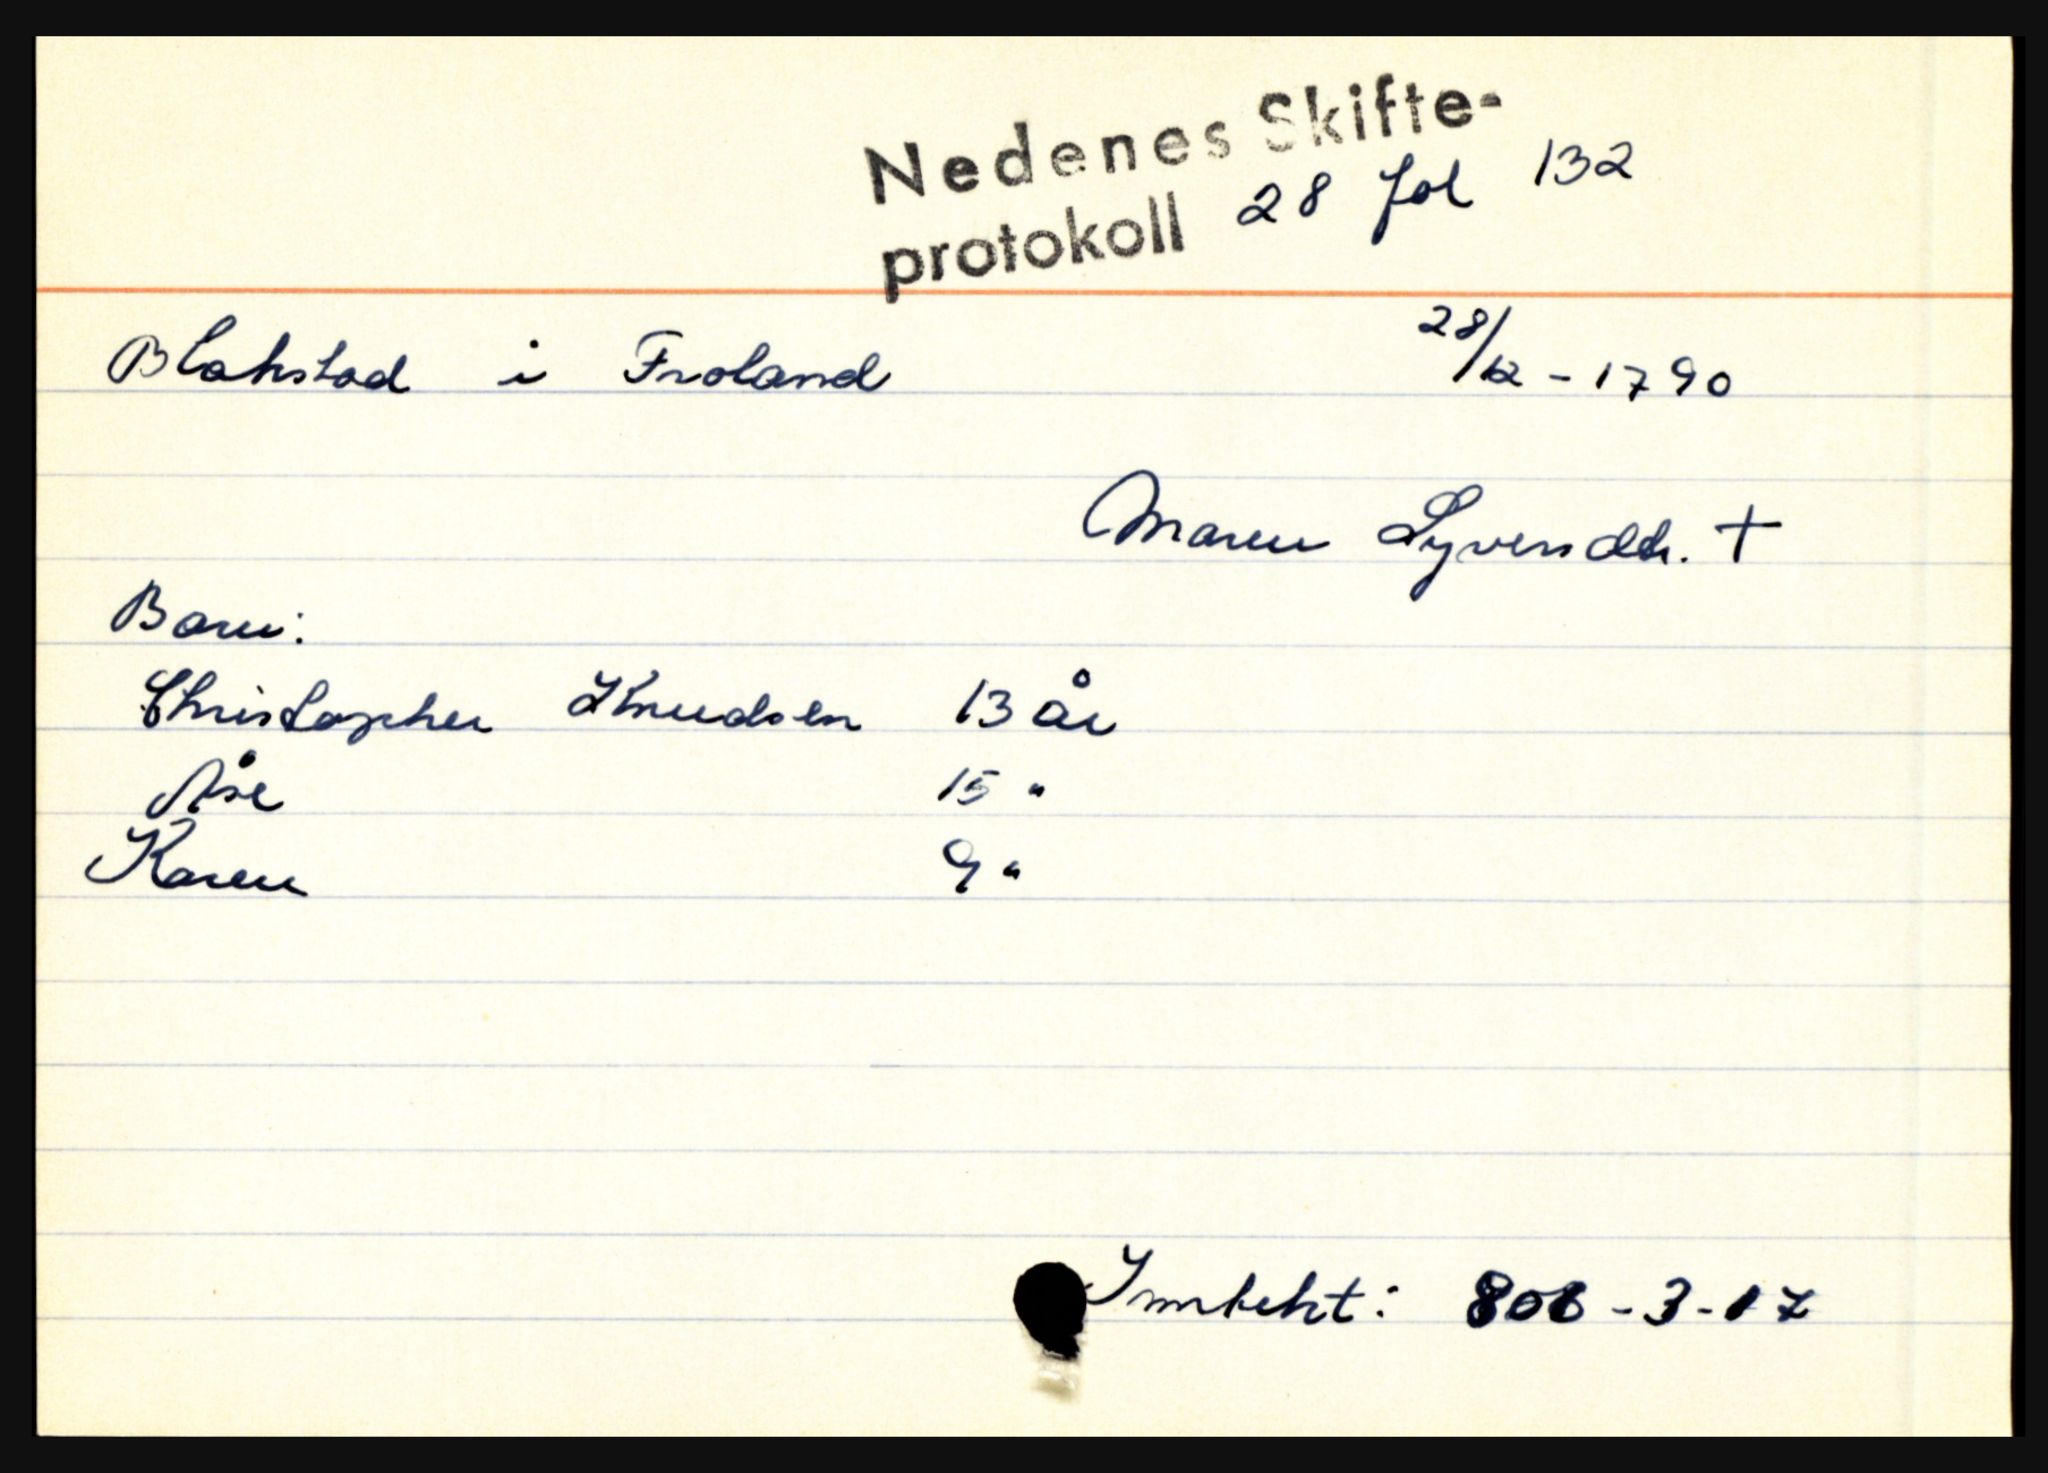 Nedenes Skifte-
protokoll 28 fol 132
Blakstad i Froland 28/12 - 1790
Maren Syversdtr. +
Barn:
Christopher Knudsen 13 år
Åse 15 "
Karen 9 "
Inntekt: 806 - 3 - 17